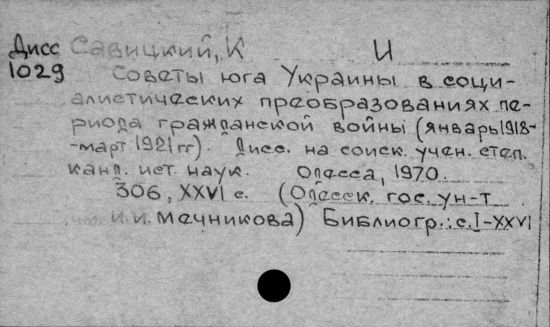 Дисс Савицкий, К И
1029 Советы юга Украины в соци-
алистических преобразованиях пе-
риода гражданской войны (январь 1918-
-март 1921 гг). Дисс. на соиск. учен. степ.
канд. ист. наук. Одесса, 1970.
306, XXVI с. (Одесск. гос. ун-т
им. И.И. Мечникова) Библиогр.: с. I-XXVI